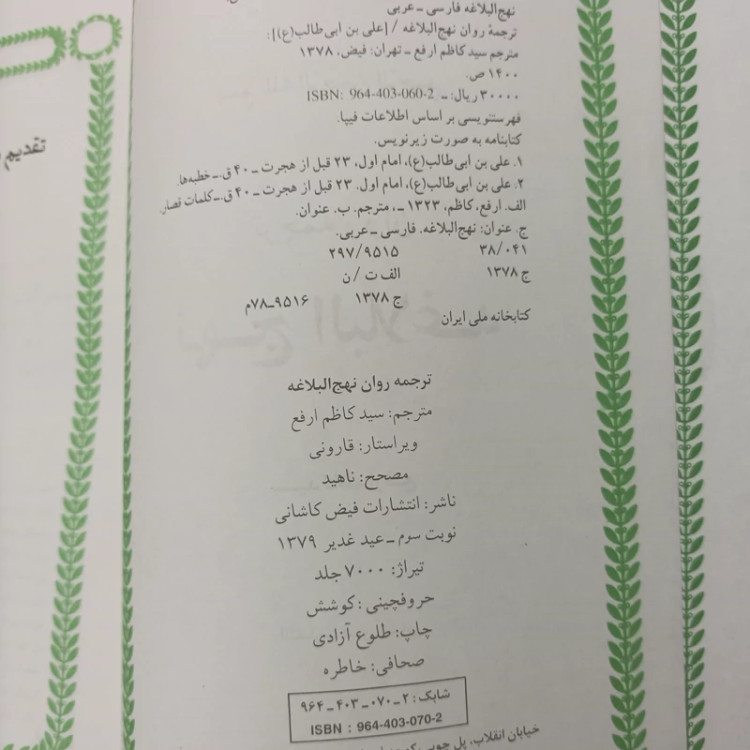 نهج‌البلاغه فارسی ـ عربی
ترجمهٔ روان نهج‌البلاغه / [علی بن ابی‌طالب(ع)]:
مترجم سید کاظم ارفع ـ تهران: فیض، ۱۳۷۸
۱۴۰۰ ص.
۳۰۰۰۰ ریال: ـ ISBN: 964-403-060-2
فهرستنویسی بر اساس اطلاعات فیپا.
کتابنامه به صورت زیرنویس.
۱. علی بن ابی‌طالب(ع)، امام اول، ۲۳ قبل از هجرت ـ ۴۰ ق. ـ خطبه‌ها.
۲. علی بن ابی‌طالب(ع)، امام اول، ۲۳ قبل از هجرت ـ ۴۰ ق. ـ کلمات قصار.
الف. ارفع، کاظم، ۱۳۲۳ ـ، مترجم. ب. عنوان.
ج. عنوان: نهج‌البلاغه. فارسی ـ عربی.
۳۸/۰۴۱ ۲۹۷/۹۵۱۵
ج ۱۳۷۸ الف ت / ن
ج ۱۳۷۸ ۹۵۱۶ـ۷۸م
کتابخانه ملی ایران
ترجمه روان نهج‌البلاغه
مترجم: سید کاظم ارفع
ویراستار: قارونی
مصحح: ناهید
ناشر: انتشارات فیض کاشانی
نوبت سوم ـ عید غدیر ۱۳۷۹
تیراژ: ۷۰۰۰ جلد
حروفچینی: کوشش
چاپ: طلوع آزادی
صحافی: خاطره
شابک: ۲ ـ ۰۷۰ ـ ۴۰۳ ـ ۹۶۴
ISBN : 964-403-070-2
خیابان انقلاب، پل چوبی
تقدیم